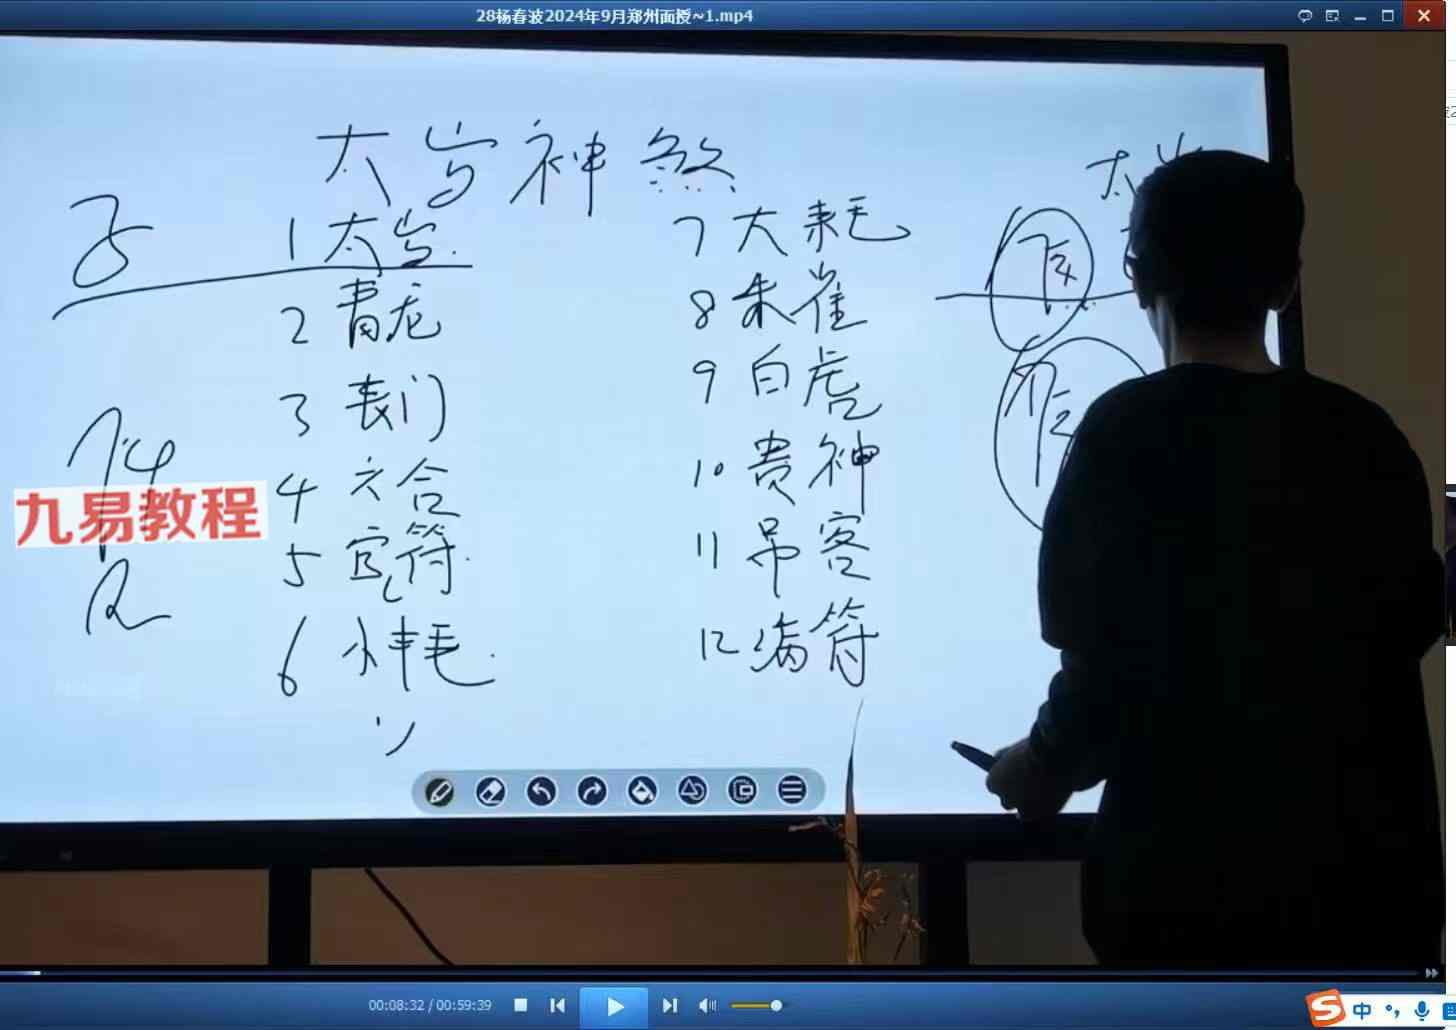 28杨春波2024年9月郑州面授~1.mp4
太岁神煞
1 太岁
2 青龙
3 丧门
4 六合
5 官符
6 小耗
7 大耗
8 朱雀
9 白虎
10 贵神
11 吊客
12 病符
太岁
九易教程
00:08:32 / 00:59:39
中